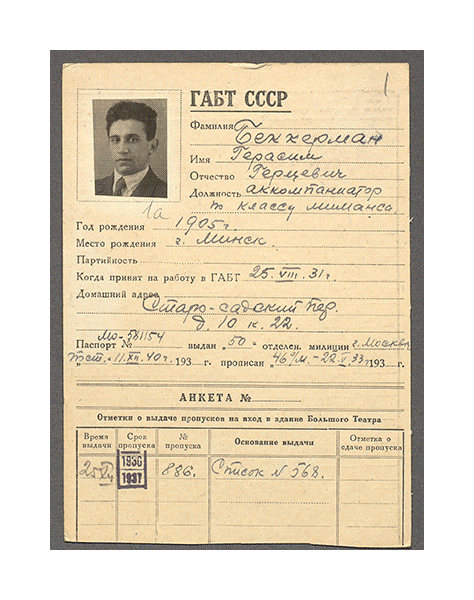 1
ГАБТ СССР
Фамилия Беккерман
Имя Герасим
Отчество Герцевич
Должность аккомпаниатор
по классу миманса.
1а
Год рождения 1905 г
Место рождения г. Минск.
Партийность
Когда принят на работу в ГАБТ 25. VIII. 31 г.
Домашний адрес
Старо-садский пер.
д. 10 к. 22.
Паспорт № Мо-581154 выдан „50" отделен. милиции г. Москвы
11. XII. 40 г. 193 г. прописан 46 о/м. - 22. V 33 193 г.
АНКЕТА №
Отметки о выдаче пропусков на вход в здание Большого Театра
Время выдачи Срок пропуска № пропуска Основание выдачи Отметка о сдаче пропуска
1936
1937
886. Список N 568.